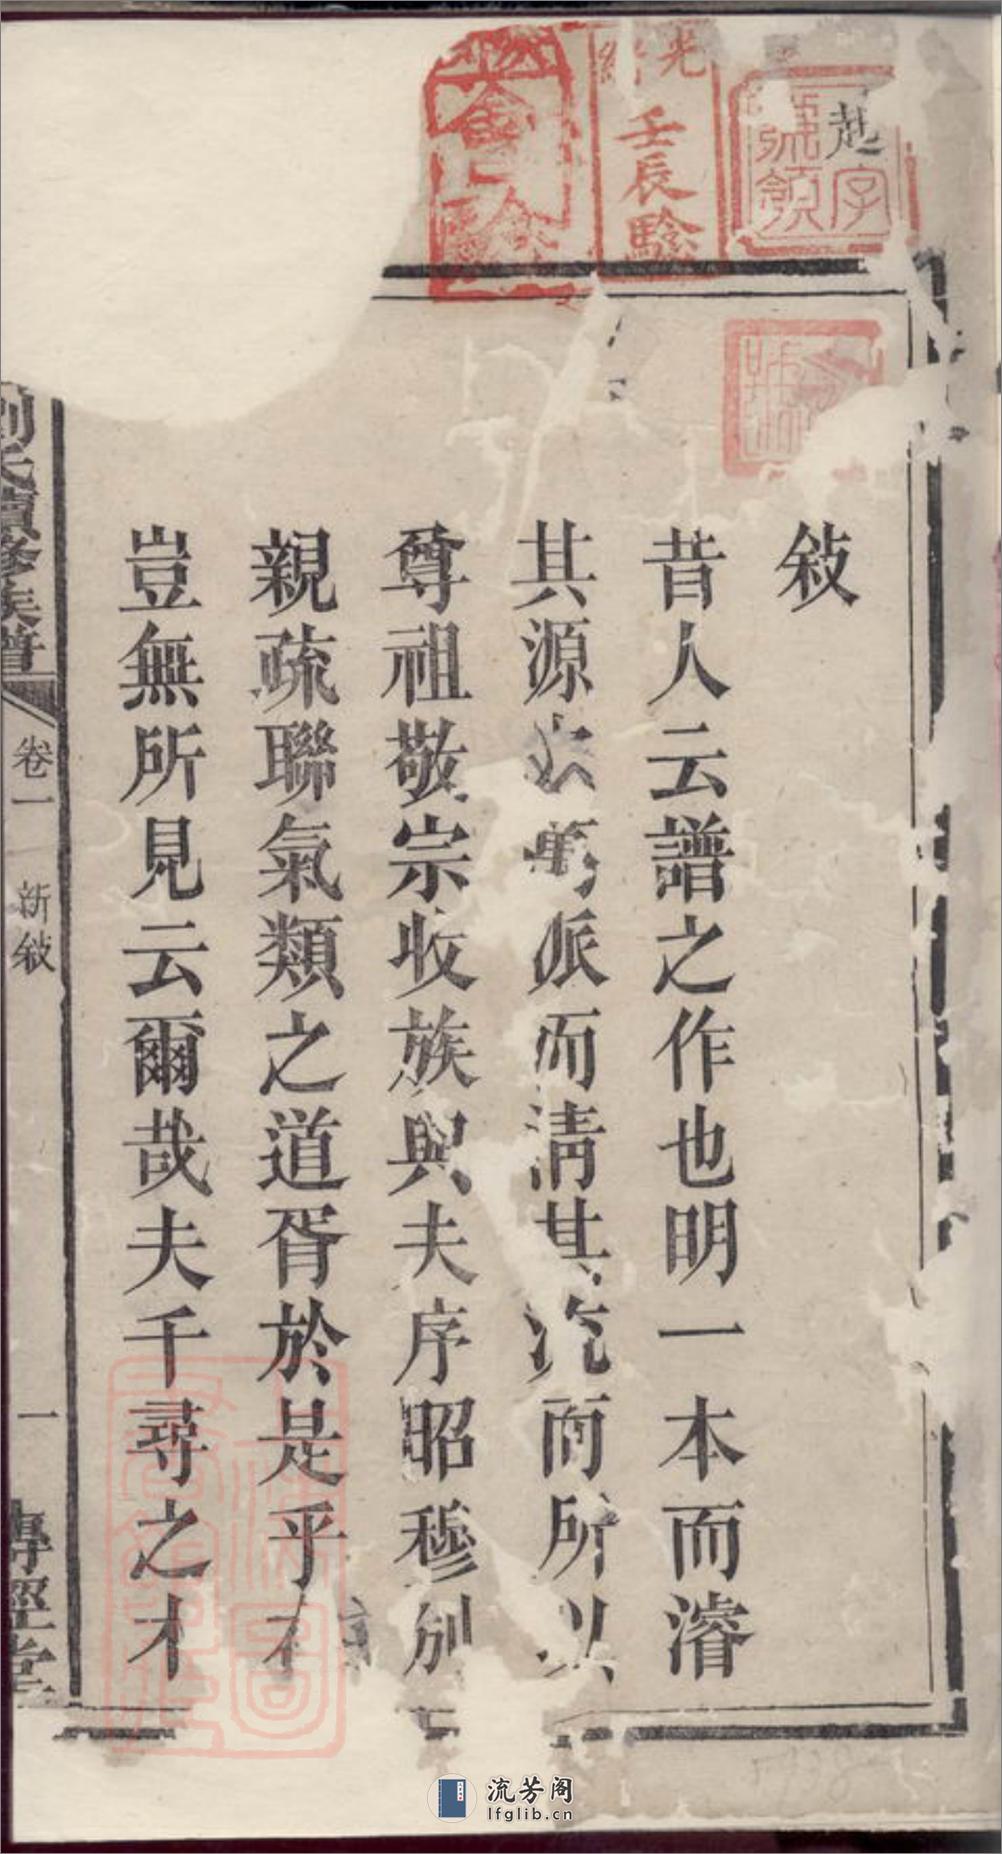 敘
昔人云譜之作也明一本而濬
其源 萬派而清其流而所以
尊祖敬宗收族與夫序昭穆別
親疏聯氣類之道胥於是乎在
豈無所見云爾哉夫千尋之木
劉氏續修族譜
卷一 新敘
一
傳經堂
起字號領
光緒壬辰驗
會驗
號
圖
流芳阁
lfglib.cn